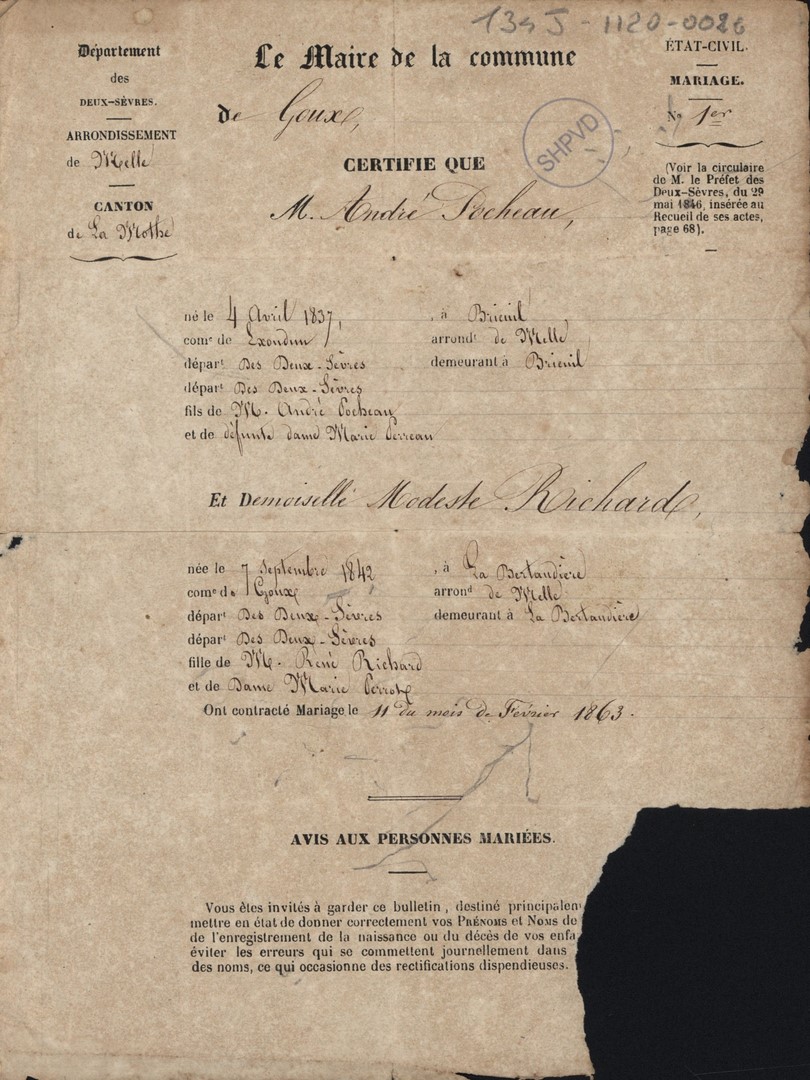 134J-1120-0026
Département
des
DEUX-SÈVRES.
ARRONDISSEMENT
de Melle
CANTON
de La Mothe
Le Maire de la commune
de Goux,
CERTIFIE QUE
M. André Pocheau,
SHPVD
ÉTAT-CIVIL.
MARIAGE.
No 1er
(Voir la circulaire
de M. le Préfet des
Deux-Sèvres, du 29
mai 1846, insérée au
Recueil de ses actes,
page 68).
né le 4 Avril 1837, à Brieuil
come de Exoudun arrondt de Melle
départ Des Deux-Sèvres demeurant à Brieuil
départ Des Deux-Sèvres
fils de M. André Pocheau
et de défunte dame Marie Perreau
Et Demoiselle Modeste Richard,
née le 7 Septembre 1842, à La Bertaudière
come de Goux arrond de Melle
départ Des Deux-Sèvres demeurant à La Bertaudière
départ Des Deux-Sèvres
fille de M. René Richard
et de Dame Marie Perrot
Ont contracté Mariage le 11 du mois de Février 1863.
AVIS AUX PERSONNES MARIÉES.
Vous êtes invités à garder ce bulletin, destiné principalem
mettre en état de donner correctement vos PRÉNOMS et NOMS de
de l'enregistrement de la naissance ou du décès de vos enfa
éviter les erreurs qui se commettent journellement dans
des noms, ce qui occasionne des rectifications dispendieuses.